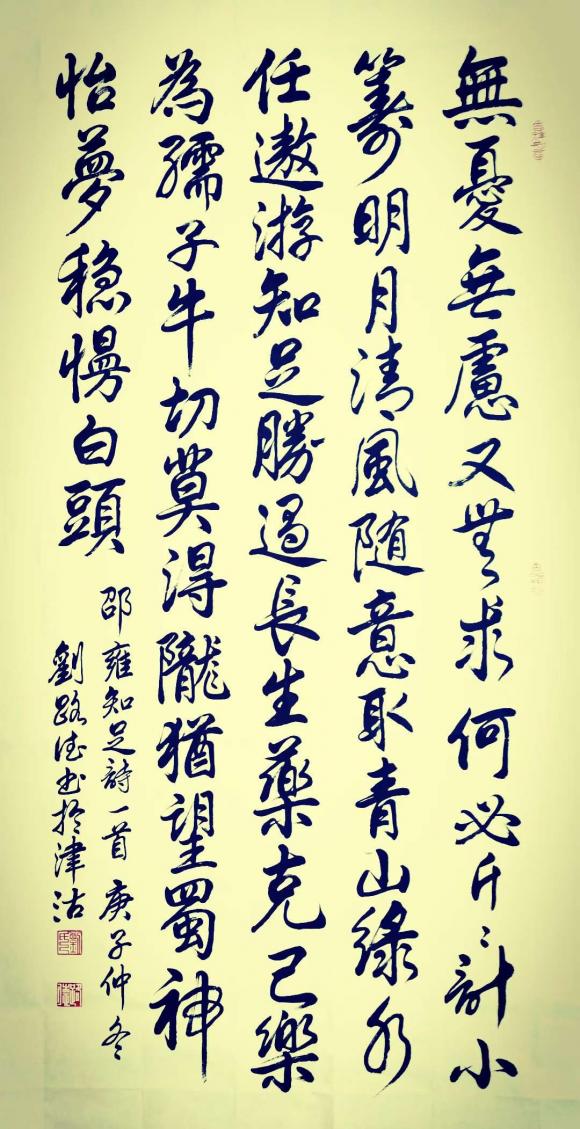 無憂無慮又無求何必斤々計小
籌明月清風隨意取青山綠水
任遨游知足勝過長生藥克己樂
為孺子牛切莫得隴猶望蜀神
怡夢穩慢白頭
邵雍知足詩一首 庚子仲冬
劉路德书於津沽